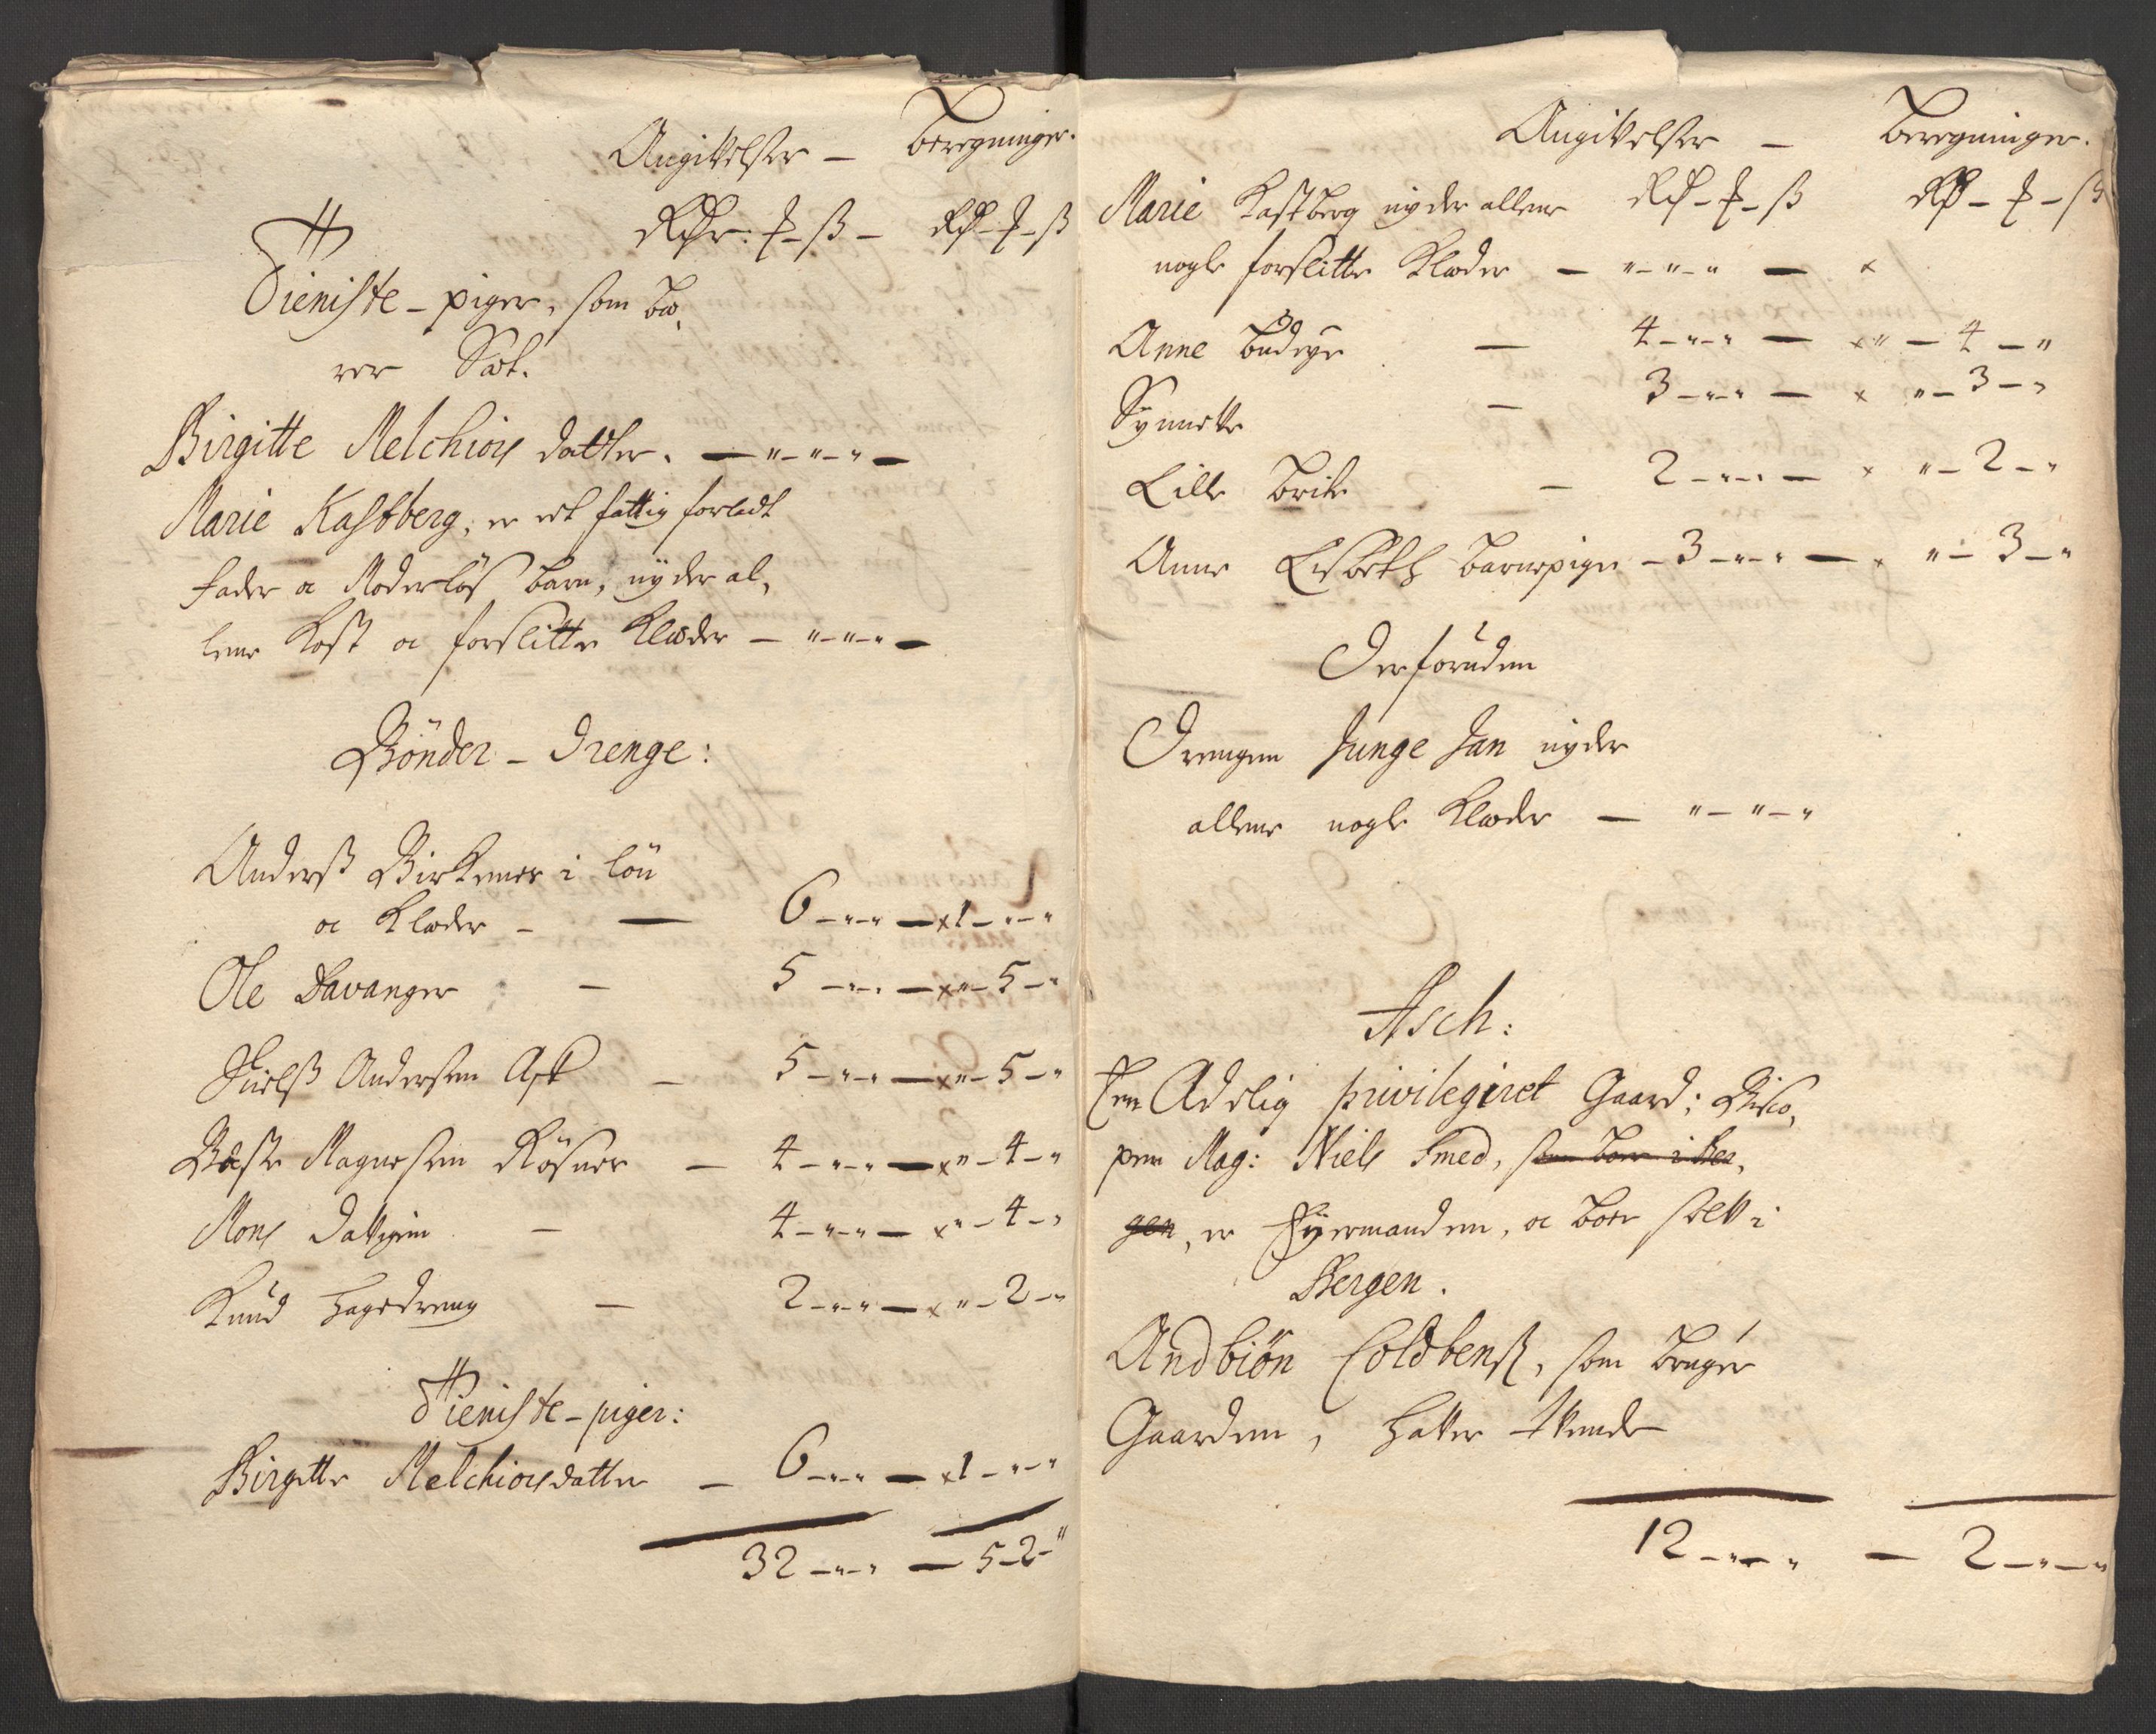 Angivelser – Beregninger.
Rdr: ƺ – ß – Rd – ƺ – ß
Tieniste-piger, som bæ,
rer Sæt.
Birgitte Melchiors datter. — " – " – " —
Marie Kastberg, er et fattig forladt
fader oc Moderløs barn, nyder al,
lene Kost oc forslitte Klæder — " – " – " —
Bönder – Drenge:
Anderß Birkener i løn
oc Klæder – — 6 – " – " — x 1 – " – "
Ole Davanger – 5 – " – " — x " – 5 – "
Nielß Andersen Ask – 5 – " – " — x " – 5 – "
Magnesen Røsner – 4 – " – " — x " – 4 – "
Mons – 4 – " – " — x " – 4 – "
Knud Hagedreng – 2 – " – " — x " – 2 – "
Tieniste-piger:
Birgitte Melchiorsdatter – 6 – " – " — x 1 – " – "
32 – " – " — 5 – 2 – "
Angivelser – Beregninger.
Marie Kastberg nyder allene Rd – ƺ – ß Rd – ƺ – ß
nogle forslitte Klæder — " – " – " — x
Anne Budeye — 4 – " – " — x " – 4 – "
Synneve – 3 – " – " — x " – 3 – "
Lille Brite – 2 – " – " — x " – 2 – "
Anne Lisbeth Barnepige – 3 – " – " — x " – 3 – "
Derforuden
Drengen Junge Jan nyder
allene nogle Klæder — " – " – "
Asch:
Een Adelig privilegiret Gaard; Bisco,
pen Mag: Niels Smed, som boer i Ber,
gen, er Eyermanden, oc boer selv i
Bergen.
Andbiön Coldbenß, som bruger
Gaarden, haver tvende
12 – " – " — 2 – " – "